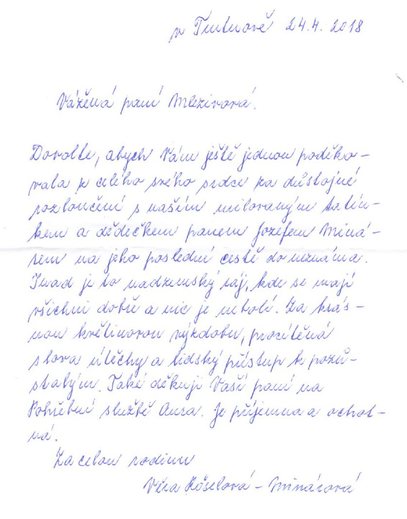 v Trutnově 24.4.2018
Vážená paní Mlezivová.
Dovolte, abych Vám ještě jednou poděko-
vala z celého svého srdce za důstojné
rozloučení s naším milovaným tatín-
kem a dědečkem panem Jozefem Miná-
rem na jeho poslední cestě do neznáma.
Snad je to nadzemský ráj, kde se mají
všichni dobře a nic je nebolí. Za krás-
nou květinovou výzdobu, procítěná
slova útěchy a lidský přístup k pozů-
stalým. Také děkuji Vaší paní na
Pohřební službě Aura. Je příjemná a ochot-
ná.
Za celou rodinu
Věra Köselová - Minárová